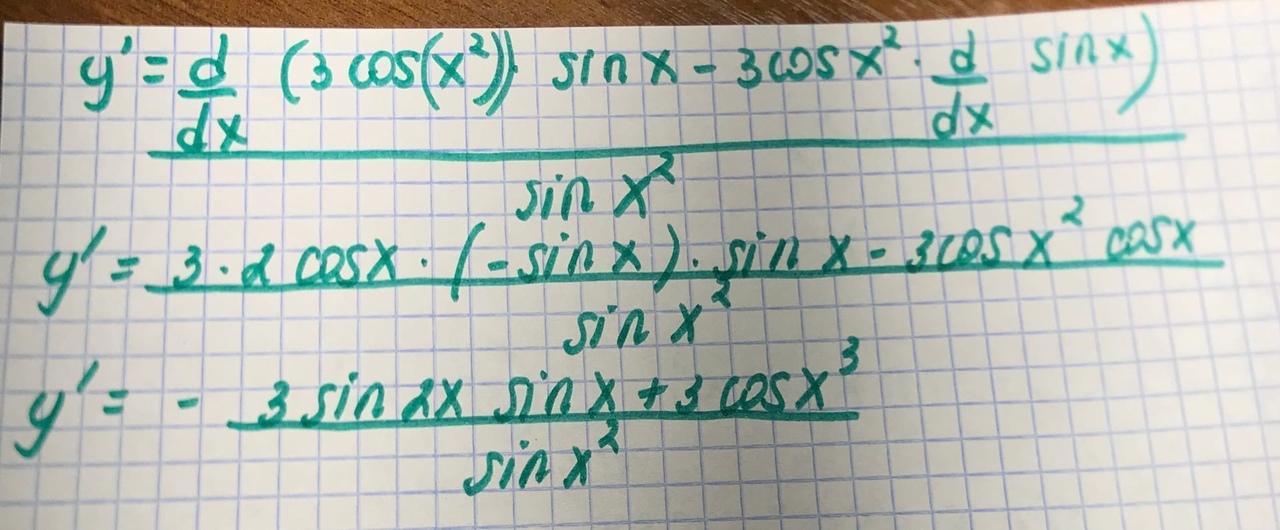 y' = d/dx (3 cos(x²)) · sin x - 3 cos x² · d/dx sin x)
sin x²
y' = 3 · 2 cos x · (- sin x) · sin x - 3 cos x² cos x
sin x²
y' = - 3 sin 2x sin x + 3 cos x³
sin x²